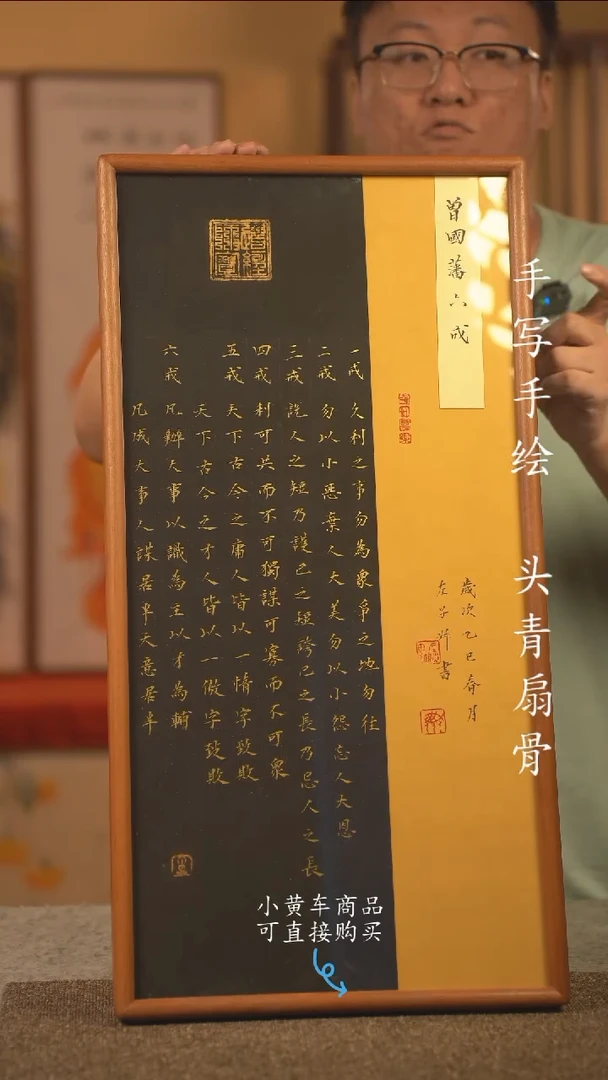 曾國藩六戒
歲次乙巳春月
書
一戒 久利之事勿為衆爭之地勿往
二戒 勿以小惡棄人大美勿以小怨忘人大恩
三戒 說人之短乃護己之短誇己之長乃忌人之長
四戒 利可共而不可獨謀可寡而不可衆
五戒 天下古今之庸人皆以一惰字致敗
天下古今之才人皆以一傲字致敗
六戒 凡辦大事以識為主以才為輔
凡成大事人謀居半天意居半
手写手绘 头青扇骨
小黄车商品
可直接购买